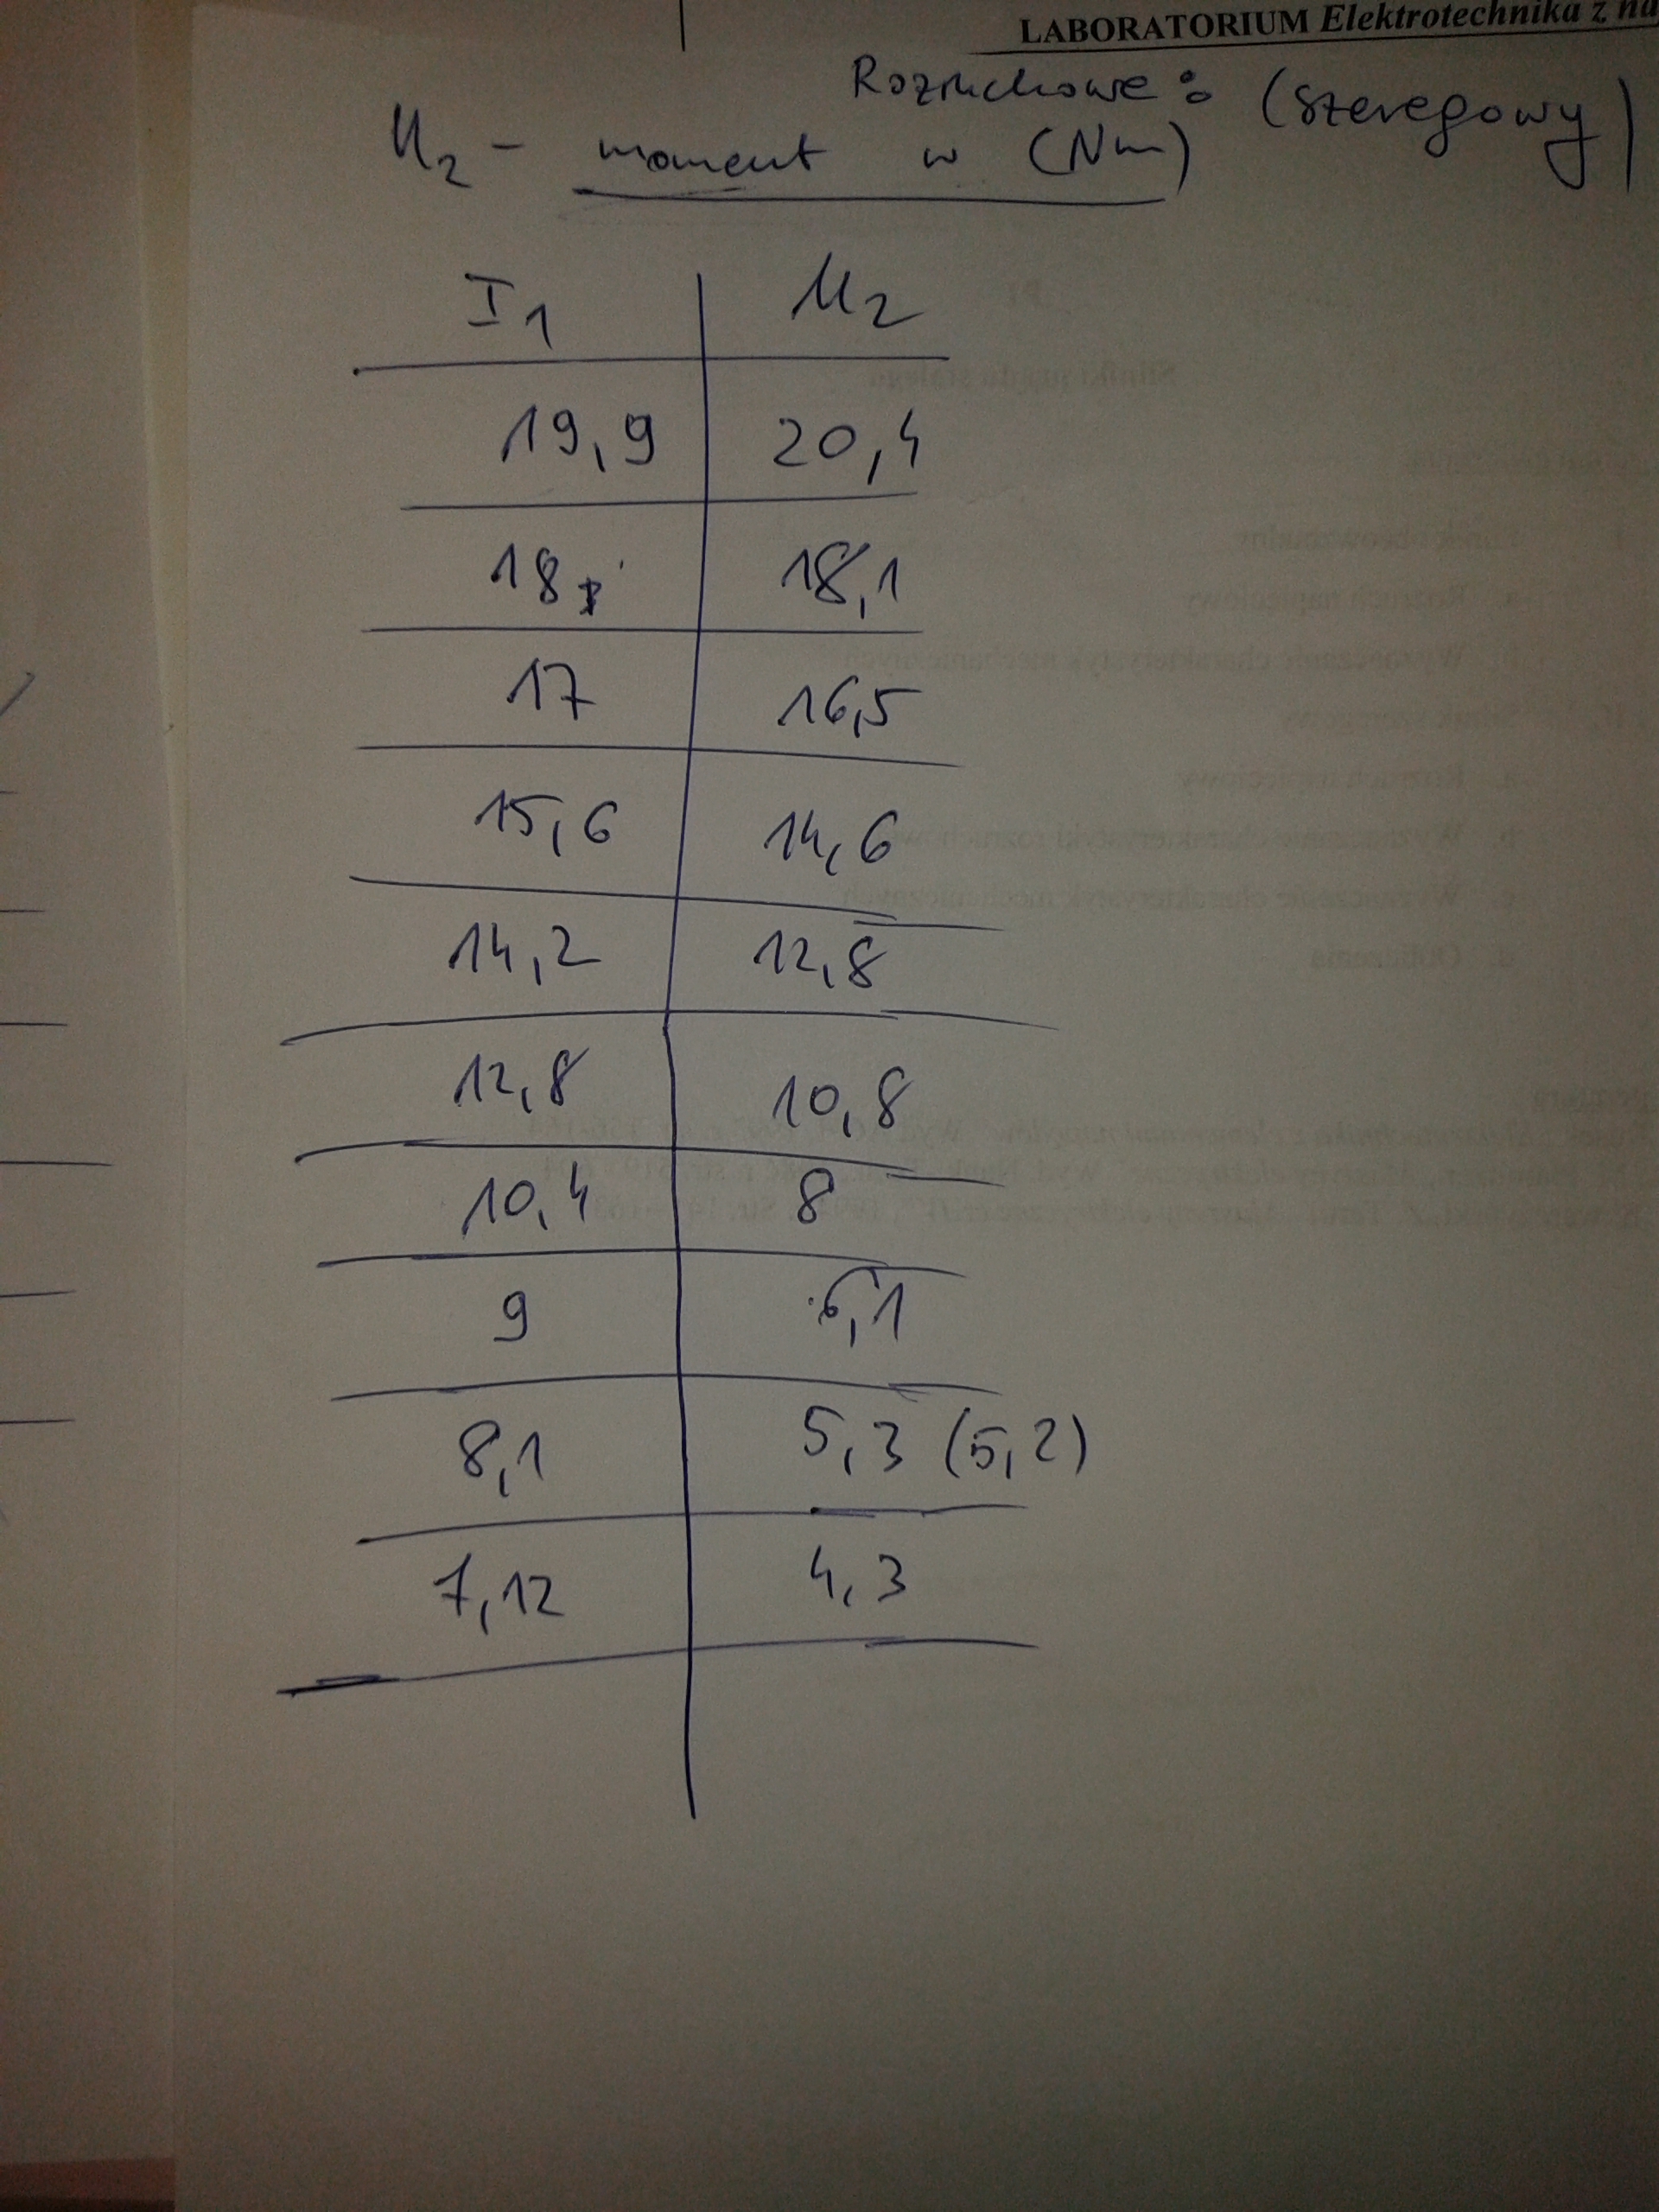 LABORATORIUM Elektrotechnika z
Rozruchowe: (szeregowy)
M2 - moment w (Nm)
I1 M2
19,9 20,4
18, 18,1
17 16,5
15,6 14,6
14,2 12,8
12,8 10,8
10,4 8
9 6,1
8,1 5,3 (5,2)
7,12 4,3